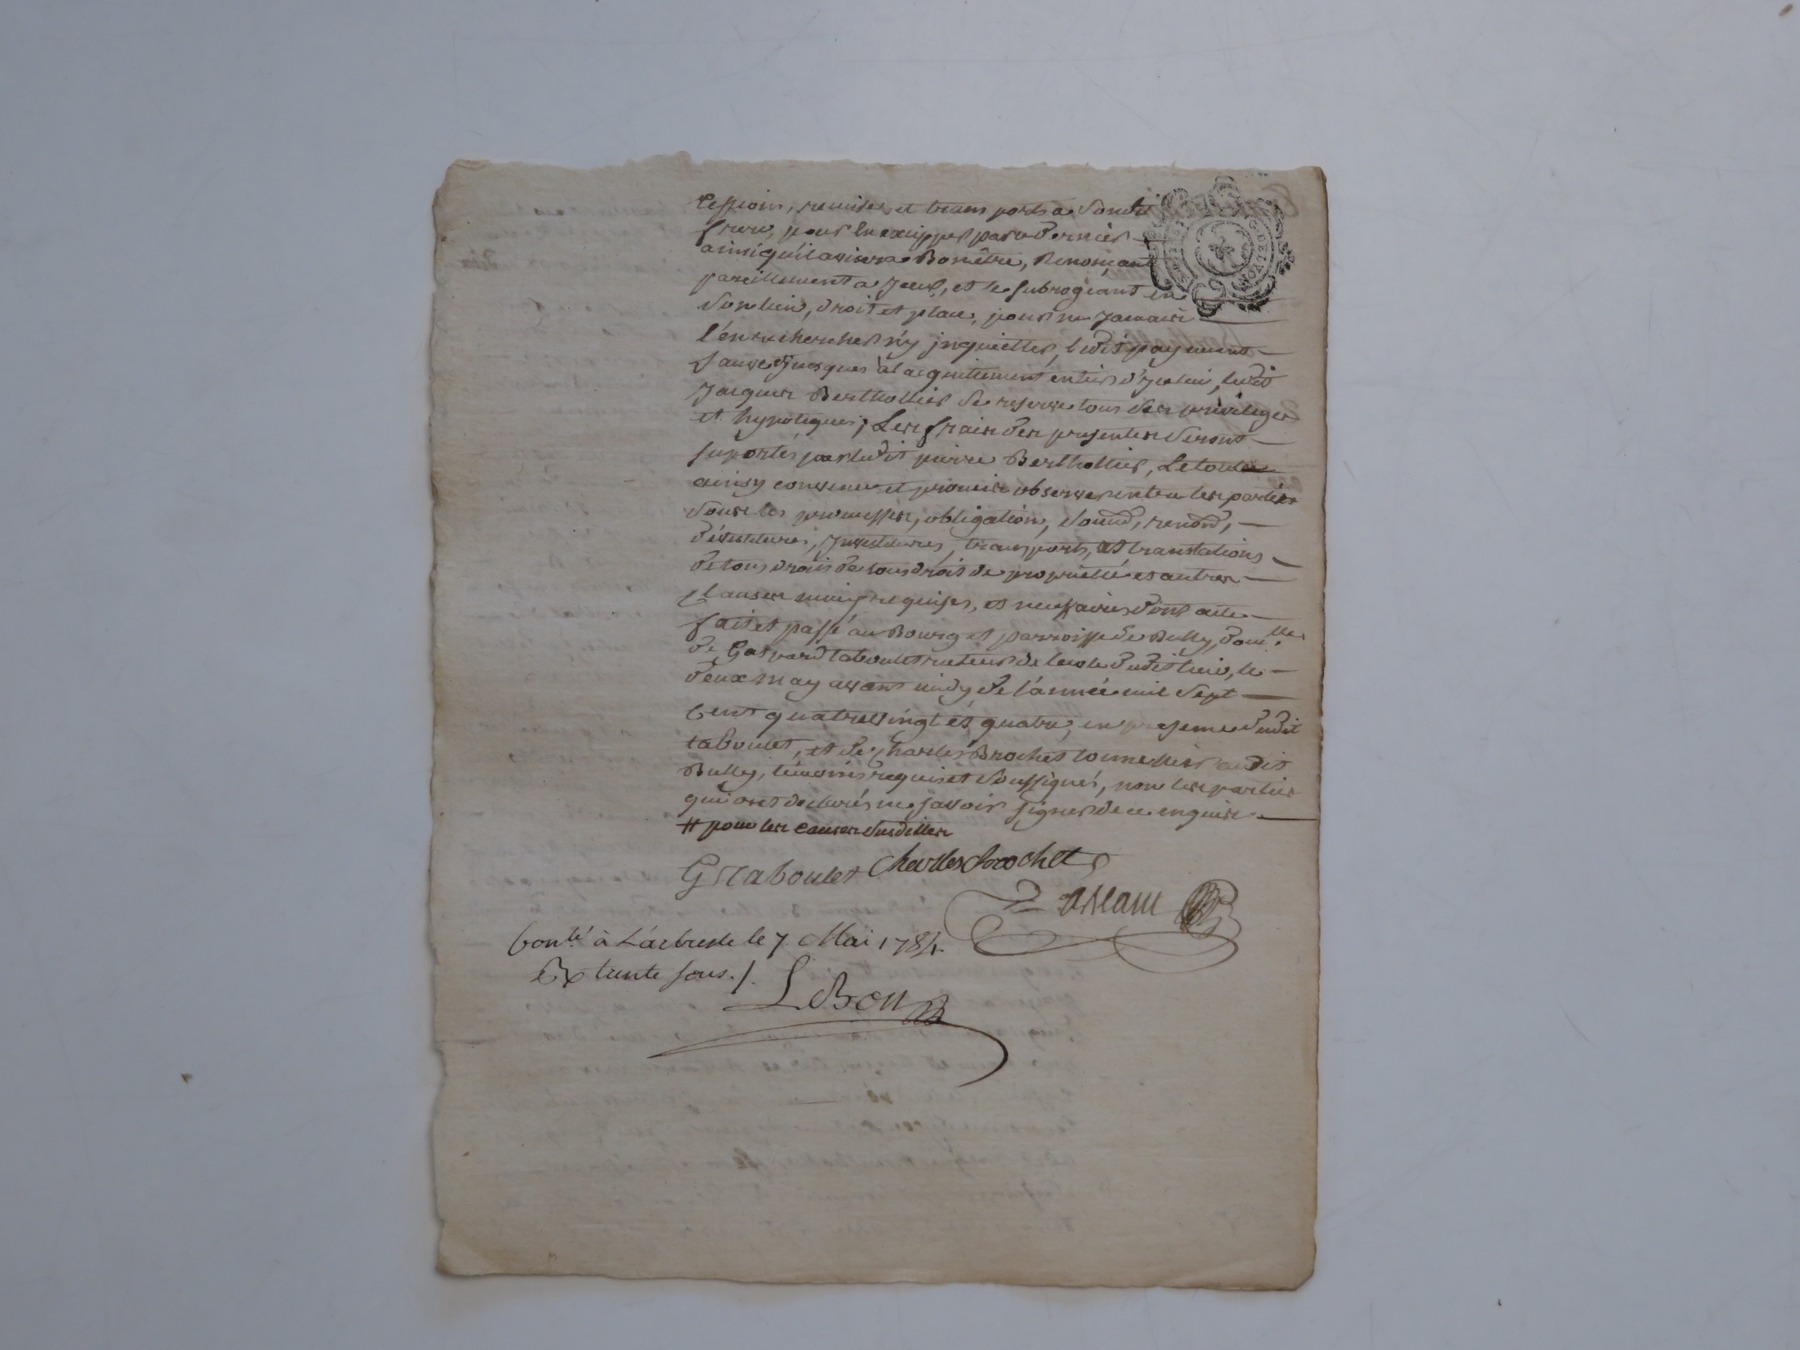 Cessions, remises et transports a Sondit
frere, pour En excipper par ce dernier
ainsi qu'il avisera Bon être, Renonçant
pareillement a Jceux, et le subrogeant en
Son lieu, droit et place, pour ne Jamais
l'en rechercher n'y jnquietter, ledit payement
fait Jusques à l'acquittement entier d'Jcelui, ledit
Jacques Berthollier se reserve tous ses privileges
et hypoteques, Les frais des presentes seront
suportés par ledit pierre Berthollier, Le tout
ainsy convenu et promis observer entre les parties
sous les promesses, obligation, soumõ, renonõ,
dévestitures, jnvestitures, transports, et translations
de tous droits de tous droits de propriété et autres
clauses mieux requises, et necessaires dont acte
fait et passé au Bourg et parroisse de Bully, domlle
de Gaspard taboulet recteur de lecole dudit lieu, le
deux may avant midy de l'année mil sept
Cent quatre vingt et quatre, en presence dudit
taboulet, et de Charles Brochet tonnellier audit
Bully, témoins requis et soussignés, non les parties
qui ont declarés ne savoir signer de ce enquis
# pour les causes susdittes
G Taboulet Charles brochet
Conlé à L'arbresle le 7 Mai 1784.
Rx trente sous ./.
LeBon